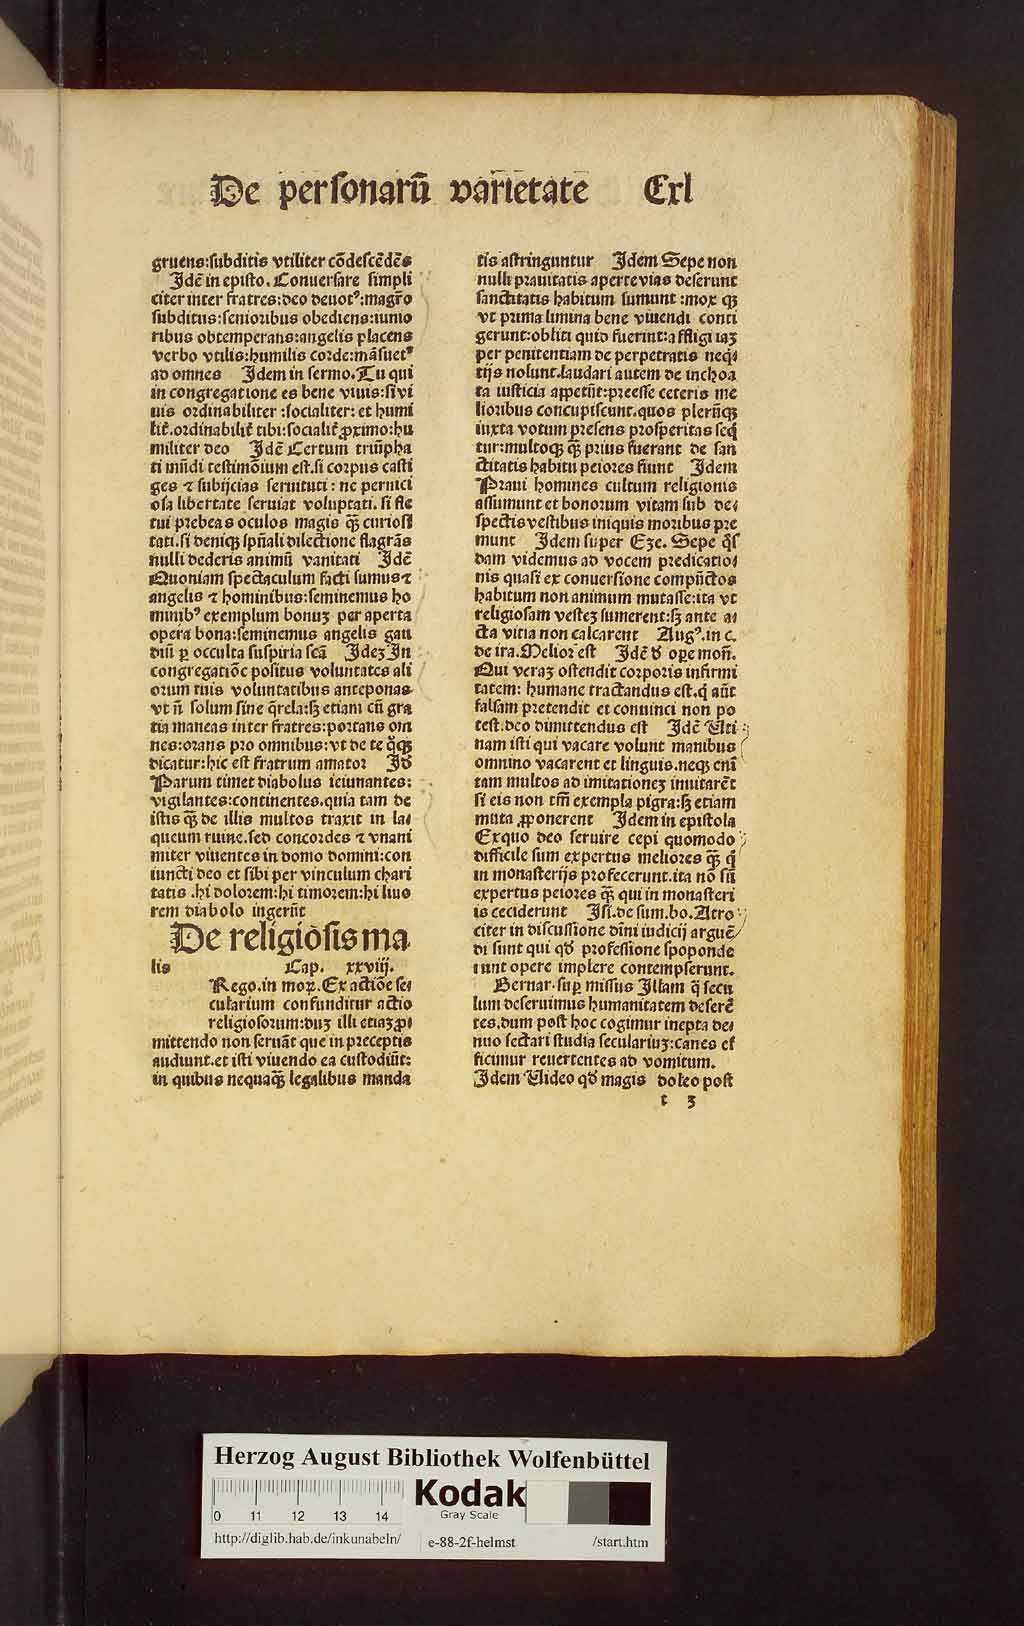 De personarū varietate Cxl
gruens:subditis vtiliter cōdescēdēs
Idē in episto. Conuersare simpli
citer inter fratres:deo deuotꝰ:magr̄o
subditus:senioribus obediens:iunio
ribus obtemperans:angelis placens
verbo vtilis:humilis corde:māsuetꝰ
ad omnes Idem in sermo. Tu qui
in congregatione es bene viuis:si vi
uis ordinabiliter :socialiter: et humi
lit̄.ordinabilit̄ tibi:socialit̄ ꝓximo:hu
militer deo Idē Certum triūpha
ti mūdi testimōium est.si corpus casti
ges ⁊ subijcias seruituti: ne pernici
osa libertate seruiat voluptati. si fle
tui prebeas oculos magis qꝫ curiosi
tati.si deniqꝫ spūali dilectione flagrās
nulli dederis animū vanitati Idē
Quoniam spectaculum facti sumus⁊
angelis ⁊ hominibus:seminemus ho
minibꝰ exemplum bonuꝫ per aperta
opera bona:seminemus angelis gau
diū ꝑ occulta suspiria scā Ideꝫ In
congregatiōe positus voluntates ali
orum tuis voluntatibus anteponas
vt n̄ solum sine q̄rela:sꝫ etiam cū gra
tia maneas inter fratres:portans om
nes:orans pro omnibus:vt de te q̊qꝫ
dicatur:hic est fratrum amator Id̄
Parum timet diabolus ieiunantes:
vigilantes:continentes.quia tam de
istis qꝫ de illis multos traxit in la-
queum ruine.sed concordes ⁊ vnani
miter viuentes in domo domini:con
iuncti deo et sibi per vinculum chari
tatis .hi dolorem:hi timorem:hi liuo
rem diabolo ingerūt
De religiosis ma
lis Cap. xxviij.
Rego.in moꝝ. Ex actiōe se-
cularium confunditur actio
religiosorum:duꝫ illi etiaꝫ ꝓ-
mittendo non seruāt que in preceptis
audiunt.et isti viuendo ea custodiūt:
in quibus nequaqꝫ legalibus manda
tis astringuntur Idem Sepe non
nulli prauitatis aperte vias deserunt
sanctitatis habitum sumunt :mox qꝫ
vt prima limina bene viuendi conti
gerunt:obliti quid fuerint:affligi iaꝫ
per penitentiam de perpetratis neq̄-
tijs nolunt.laudari autem de inchoa
ta iusticia appetūt:preesse ceteris me
lioribus concupiscunt.quos plerūqꝫ
iuxta votum p̄sens prosperitas seq̄
tur:multoqꝫ qꝫ prius fuerant de san
ctitatis habitu peiores fiunt Idem
Praui homines cultum religionis
assumunt et bonorum vitam sub de-
spectis vestibus iniquis moribus pre
munt Idem super Eze. Sepe q̊s
dam videmus ad vocem predicatio-
nis quasi ex conuersione compūctos
habitum non animum mutasse:ita vt
religiosam vesteꝫ sumerent:sꝫ ante a-
cta vitia non calcarent Augꝰ.in c.
de ira.Melior est Idē d̄ oꝑe mon̄.
Qui veraꝫ ostendit corporis infirmi
tatem: humane tractandus est.q̄ aūt
falsam pretendit et conuinci non po
test.deo dimittendus est Idē Uti
nam isti qui vacare volunt manibus
omnino vacarent et linguis.neqꝫ enī
tam multos ad imitationeꝫ inuitarēt
si eis non tm̄ exempla pigra:sꝫ etiam
muta ꝓponerent Idem in epistola
Exquo deo seruire cepi quomodo
difficile sum expertus meliores qꝫ q̄
in monasterijs profecerunt.ita nō sū
expertus peiores qꝫ qui in monasteri
is ceciderunt Isi.de sum.bo.Atro
citer in discussione dīni iudicij arguē
di sunt qui qd̄ professione spoponde
runt opere implere contempserunt.
Bernar.suꝑ missus Illam q̄ secu
lum deseruimus humanitatem deserē
tes.dum post hoc cogimur inepta de-
nuo sectari studia seculariuꝫ:canes ef
ficimur reuertentes ad vomitum.
Idem Uideo qd̄ magis doleo post
t 3
Herzog August Bibliothek Wolfenbüttel
0 11 12 13 14
Kodak
Gray Scale
http://diglib.hab.de/inkunabeln/ e-88-2f-helmst /start.htm